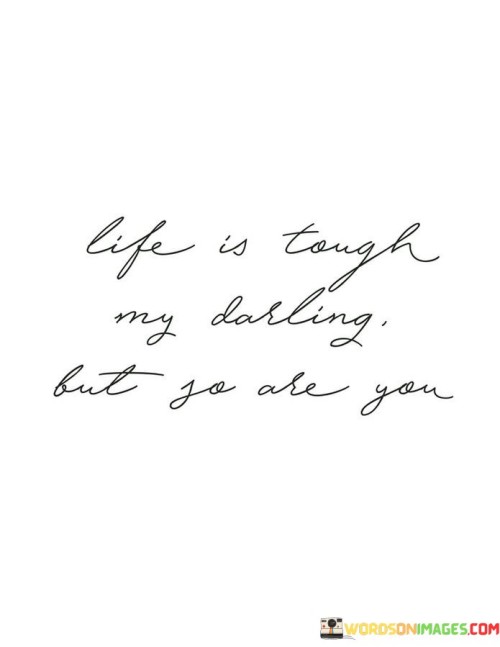 life is tough
my darling,
but so are you
WORDSONIMAGES.COM